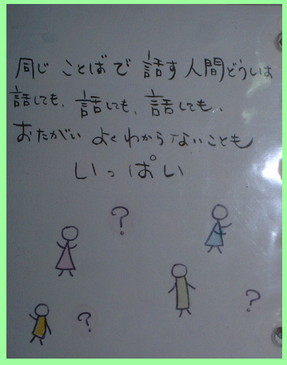 同じ ことばで 話す 人間どうしは
話しても、話しても、話しても、
おたがい よくわからないことも
いっぱい
?
?
?